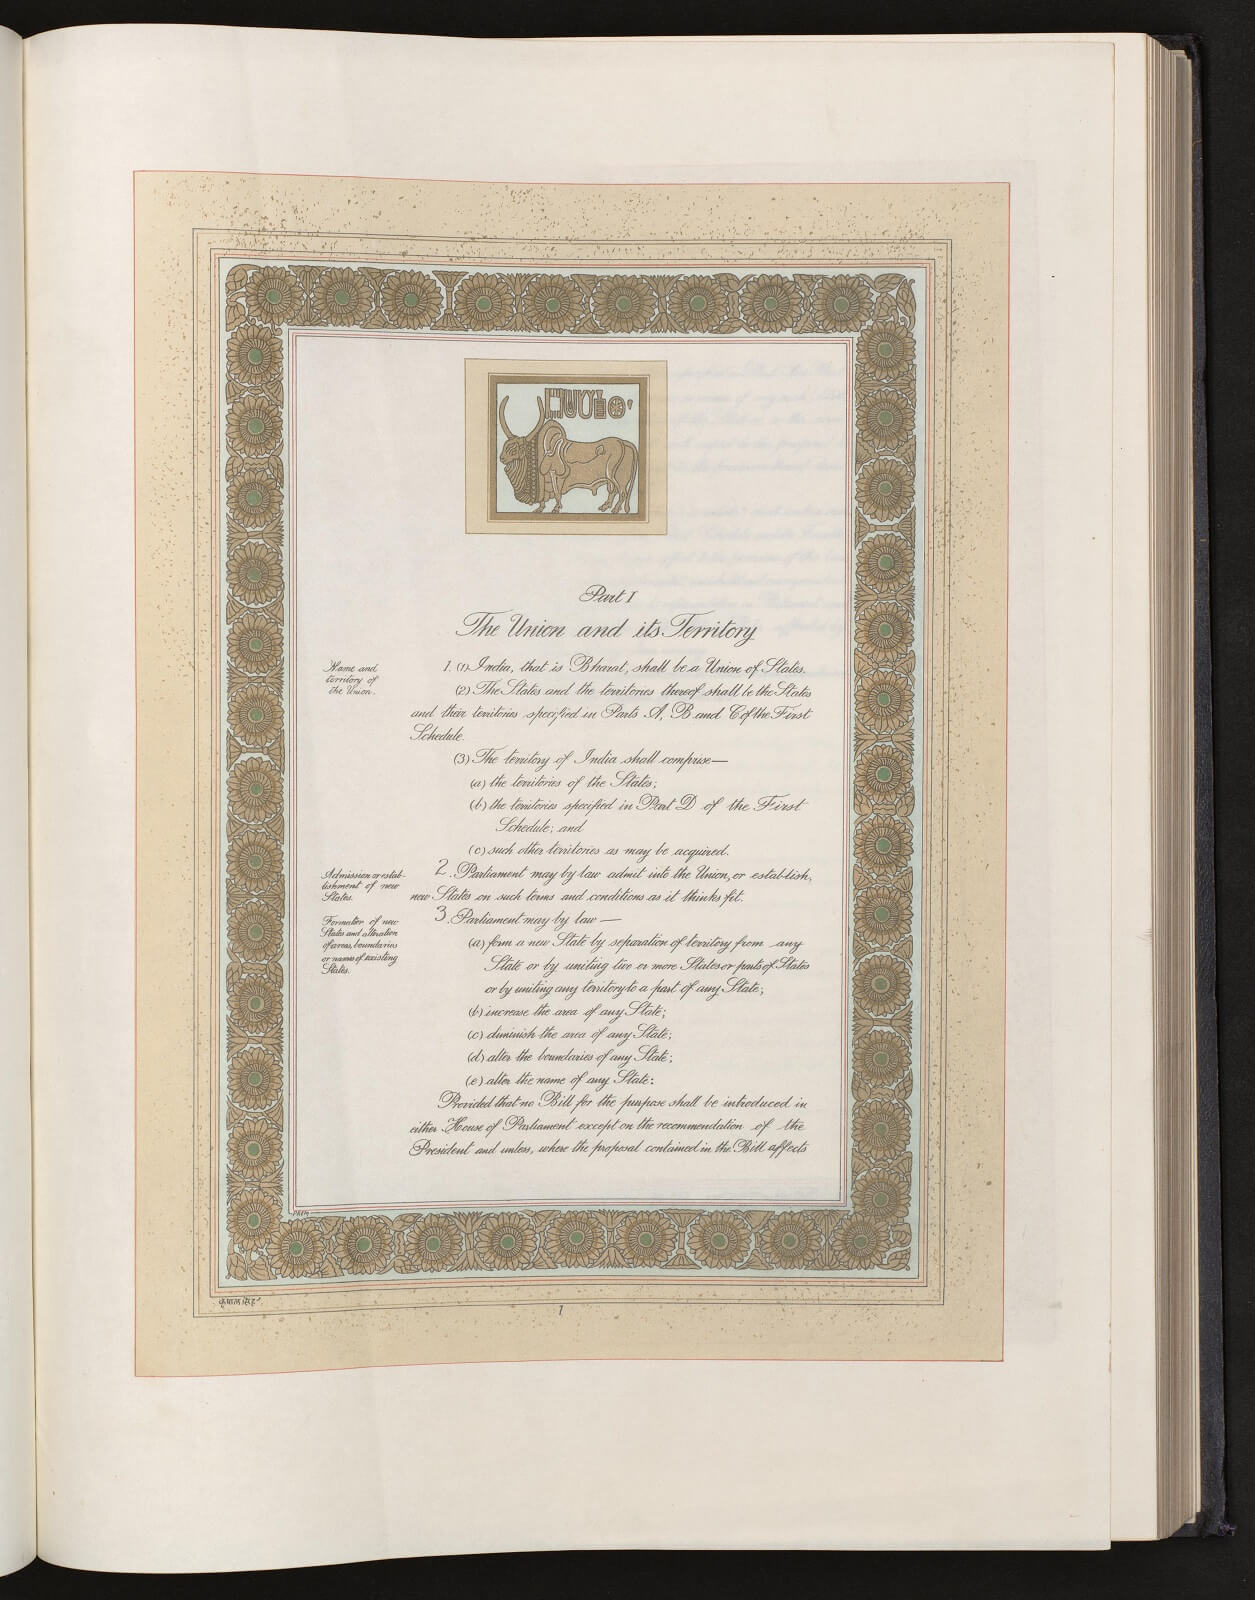 Part I
The Union and its Territory
Name and
territory of
the Union.
1. (1) India, that is Bharat, shall be a Union of States.
(2) The States and the territories thereof shall be the States
and their territories specified in Parts A, B and C of the First
Schedule.
(3) The territory of India shall comprise—
(a) the territories of the States;
(b) the territories specified in Part D of the First
Schedule; and
(c) such other territories as may be acquired.
Admission or estab-
lishment of new
States.
2. Parliament may by law admit into the Union, or establish,
new States on such terms and conditions as it thinks fit.
Formation of new
States and alteration
of areas, boundaries
or names of existing
States.
3. Parliament may by law—
(a) form a new State by separation of territory from any
State or by uniting two or more States or parts of States
or by uniting any territory to a part of any State;
(b) increase the area of any State;
(c) diminish the area of any State;
(d) alter the boundaries of any State;
(e) alter the name of any State:
Provided that no Bill for the purpose shall be introduced in
either House of Parliament except on the recommendation of the
President and unless, where the proposal contained in the Bill affects
PREM
1